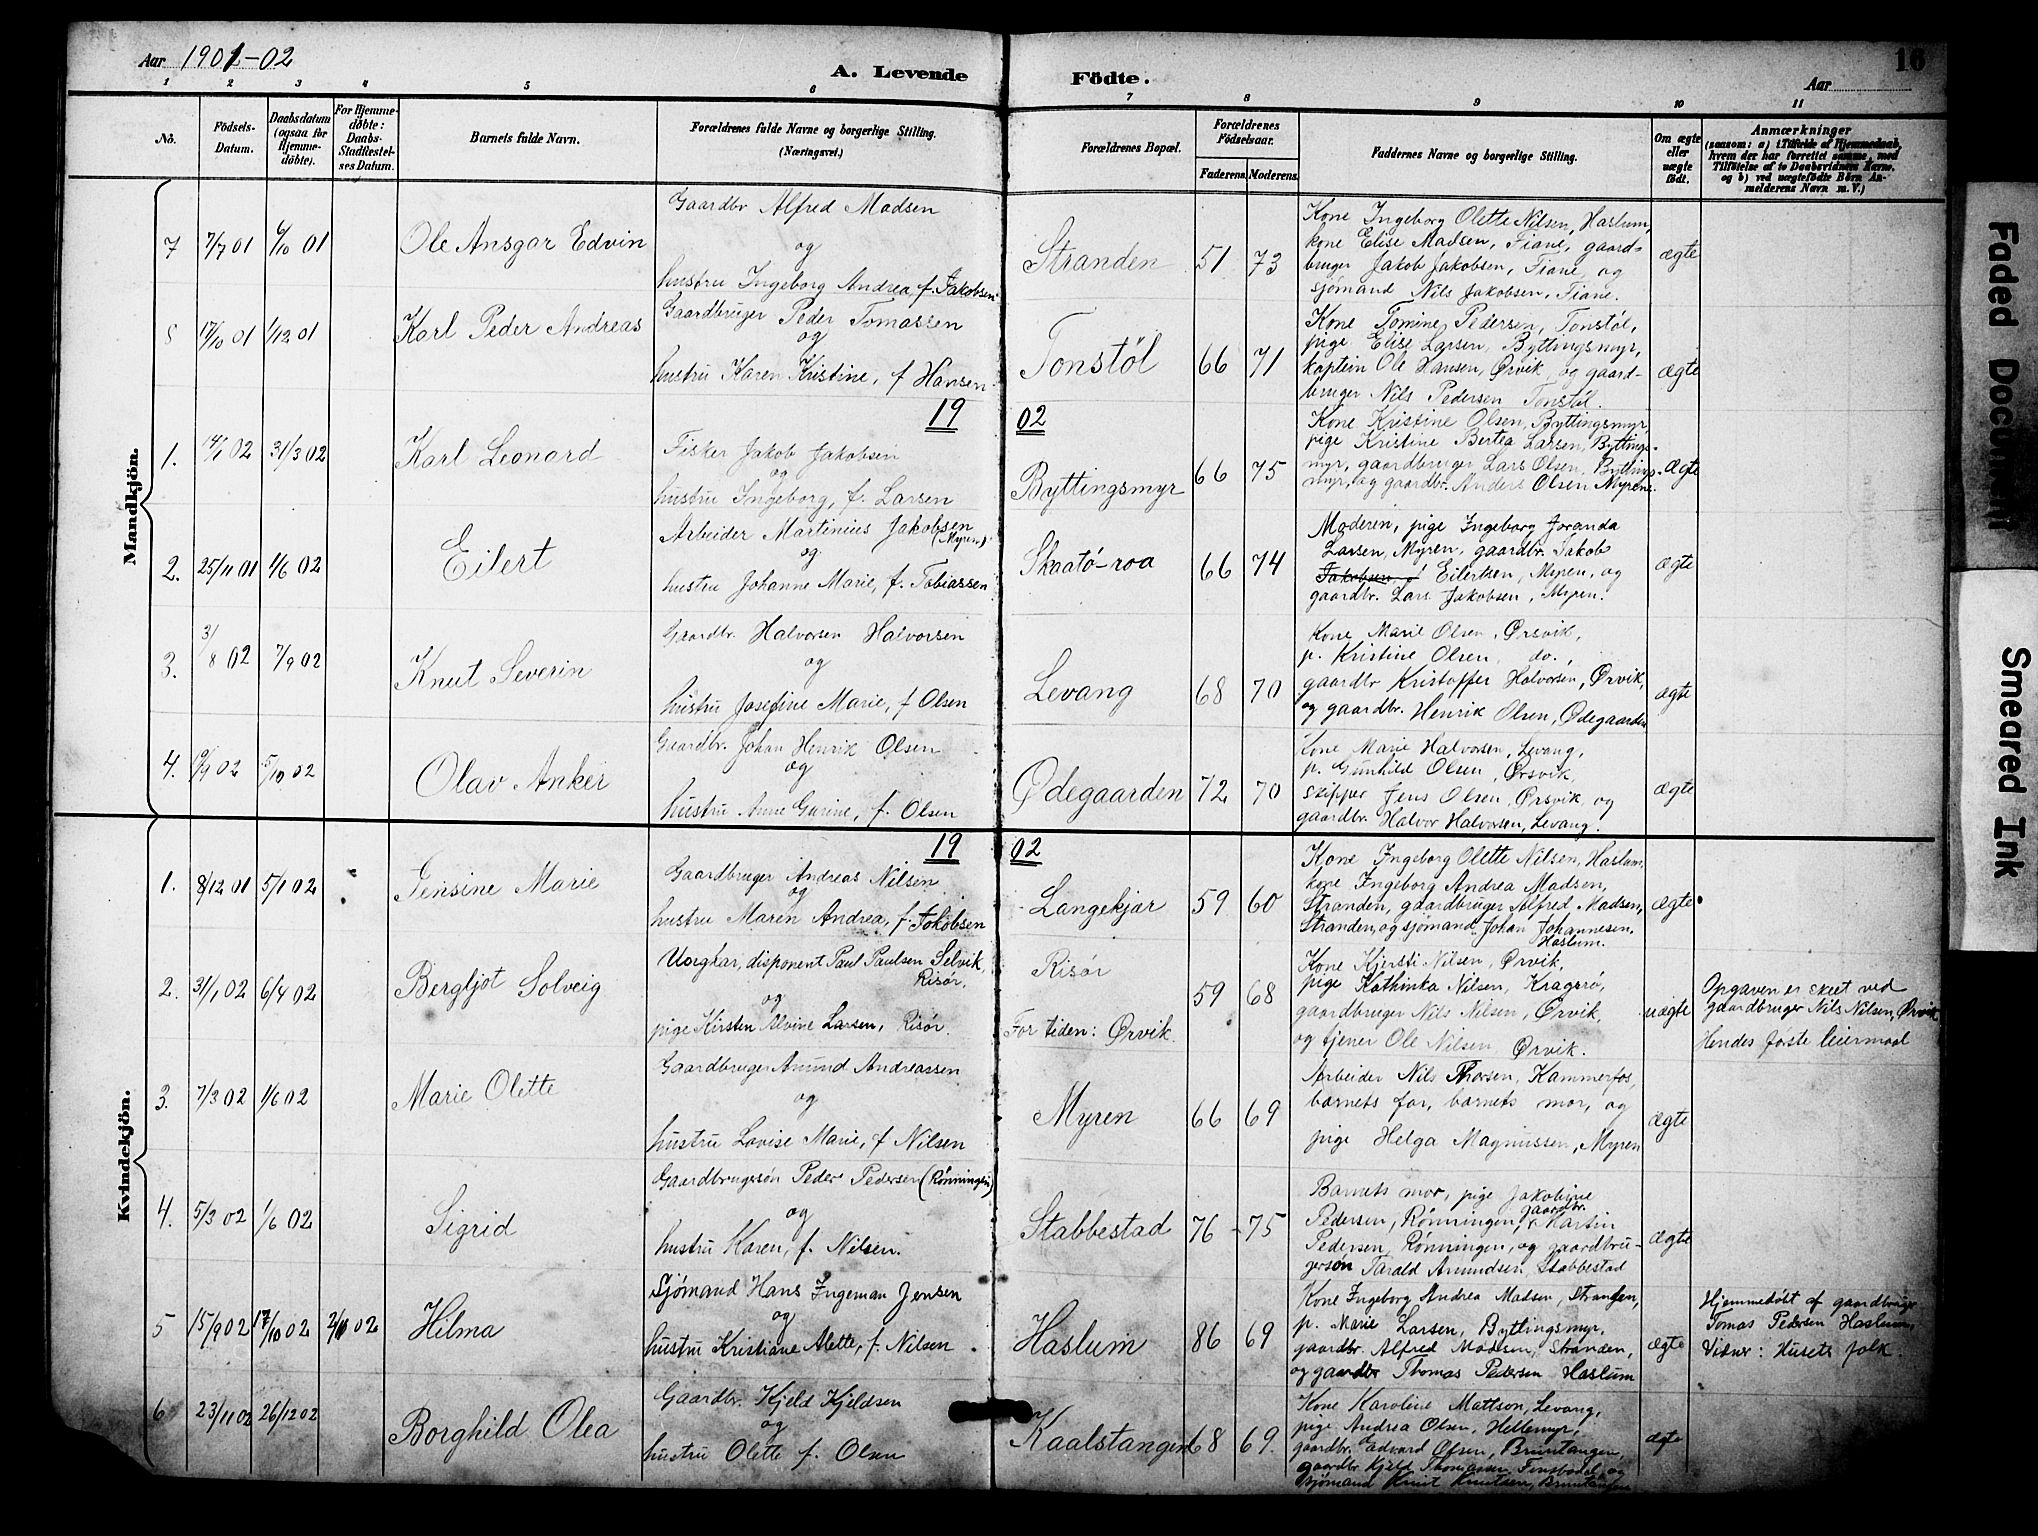 Aar 1901-02
A. Levende Födte.
Aar
16
1 2 3 4 5 6 7 8 9 10 11
No.
Födsels-Datum.
Daabsdatum (ogsaa for Hjemme-döbte).
For Hjemme-döbte: Daabs-Stadfæstel-ses Datum.
Barnets fulde Navn.
Forældrenes fulde Navne og borgerlige Stilling.
(Næringsvei.)
Forældrenes Bopæl.
Forældrenes Födselsaar.
Faderens. Moderens.
Faddernes Navne og borgerlige Stilling.
Om ægte eller uægte født.
Anmærkninger
(saasom: a) i Tilfælde af Hjemmedaab,
hvem der har forrettet samme, med
Tilföielse af to Daabsvidners Navne,
og b) ved uægtefödte Börn An-
melderens Navn m. V.)
Mandkjön.
7 7/7 01 6/10 01 Ole Ansgar Edvin
Gaardbr Alfred Madsen
og
hustru Ingeborg Andrea, f. Jakobsen
Stranden 51 73
Kone Ingeborg Olette Nilsen, Haslum,
kone Elise Madsen, Fiane, gaard-
bruger Jakob Jakobsen, Fiane, og
sjömand Nils Jakobsen, Fiane.
ægte
8 17/10 01 1/12 01 Karl Peder Andreas
Gaardbruger Peder Tomassen
og
hustru Karen Kristine, f Hansen
Tonstöl 66 71
Kone Tomine Pedersen, Tonstöl,
pige Elise Larsen, Byttingsmyr,
kaptein Ole Hansen, Ørvik og gaard-
bruger Nils Pedersen Tonstöl.
ægte
19 02
1. 14/1 02 31/3 02 Karl Leonard
Fisker Jakob Jakobsen
og
hustru Ingeborg, f. Larsen
Byttingsmyr 66 75
Kone Kristine Olsen, Byttingsmyr,
pige Kristine Bertea Larsen, Byttings-
myr, gaardbruger Lars Olsen, Byttings-
myr, og gaardbr. Anders Olsen Myrene.
Ægte
2. 25/11 01 1/6 02 Eilert
Arbeider Martinius Jakobsen
(Myren)
og
hustru Johanne Marie, f. Tobiassen
Skaatö-roa 66 74
Moderen, pige Ingeborg Joranda
Larsen, Myren, gaardbr. Jakob
Jakobsen Eilertsen, Myren, og
gaardbr. Lars Jakobsen, Myren.
ægte
3. 3/8 02 7/9 02 Knut Severin
Gaardbr. Halvorsen Halvorsen
og
hustru Josefine Marie, f Olsen
Levang 68 70
Kone Marie Olsen, Ørsvik,
p. Kristine Olsen, do.,
gaardbr Kristoffer Halvorsen, Ørvik,
og gaardbr. Henrik Olsen, Ødegaarden
ægte
4. 9/9 02 5/10 02 Olav Anker
Gaardbr. Johan Henrik Olsen
og
hustru Anne Gurine, f. Olsen
Ødegaarden 72 70
Kone Marie Halvorsen, Levang,
p. Gunhild Olsen, Ørsvik,
skipper Jens Olsen, Ørsvik, og
gaardbr. Halvor Halvorsen, Levang.
ægte
Kvindekjön.
19 02
1. 8/12 01 5/1 02 Jensine Marie
Gaardbruger Andreas Nilsen
og
hustru Maren Andrea, f. Jakobsen
Langekjær 59 60
Kone Ingeborg Olette Nilsen, Haslum,
kone Ingeborg Andrea Madsen,
Stranden, gaardbruger Alfred Madsen,
Stranden, og sjømand Johan Johannesen,
Haslum.
ægte
2. 31/1 02 6/4 02 Bergljot Solveig
Ungkar, disponent Paul Paulsen Selvik,
Risør.
og
pige Kirsten Alvine Larsen, Risør.
Risør
For tiden: Ørvik. 59 68
Kone Kjersti Nilsen, Ørvik,
pige Kathinka Nilsen, Kragerø,
gaardbruger Nils Nilsen, Ørvik,
og tjener Ole Nilsen, Ørvik.
uægte
Opgaven er skeet ved
gaardbruger Nils Nilsen, Ørvik
Hendes første leiermaal
3. 7/3 02 1/6 02 Marie Olette
Gaardbruger Amund Andreassen
og
hustru Lovise Marie, f Nilsen
Myren 66 69
Arbeider Nils Thorsen, Kammerfos,
barnets far, barnets mor, og
pige Helga Magnussen, Myren
ægte
4. 5/3 02 1/6 02 Sigrid
Gaardbrugersön Peder Pedersen (Rönningen)
og
hustru Karen, f. Nilsen.
Stabbestad 76 - 75
Barnets mor, pige Jakobine
Pedersen, Rønningen, gaardbr. Martin
Pedersen, Rønningen, og gaardbru-
gersön Tarald Amundsen, Stabbestad
ægte
5 15/9 02 17/10 02 2/11 02 Hilma
Sjömand Hans Ingeman Jensen
og
hustru Kristiane Alette, f. Nilsen
Haslum 86 69
Kone Ingeborg Andrea Madsen, Stranden,
p. Marie Larsen, Byttingsmyr,
gaardbr. Alfred Madsen, Stranden,
og gaardbr Thomas Pedersen Haslum
ægte
Hjemmedöbt af gaardbruger
Tomas Pedersen Haslum,
Vidner: Husets folk.
6 23/11 02 26/12 02 Borghild Olea
Gaardbr. Kjeld Kjeldsen
og
hustru Olette f. Olsen
Kaalstangen 68 69.
Kone Karoline Mattson, Levang,
pige Andrea Olsen, Hellemyr,
gaardbr. Edvard Olsen, Bruntangen
gaardbr. Kjeld Thomassen, Finsbodal, og
sjömand Knut Knutsen, Bruntangen
ægte
Faded Document
Smeared Ink